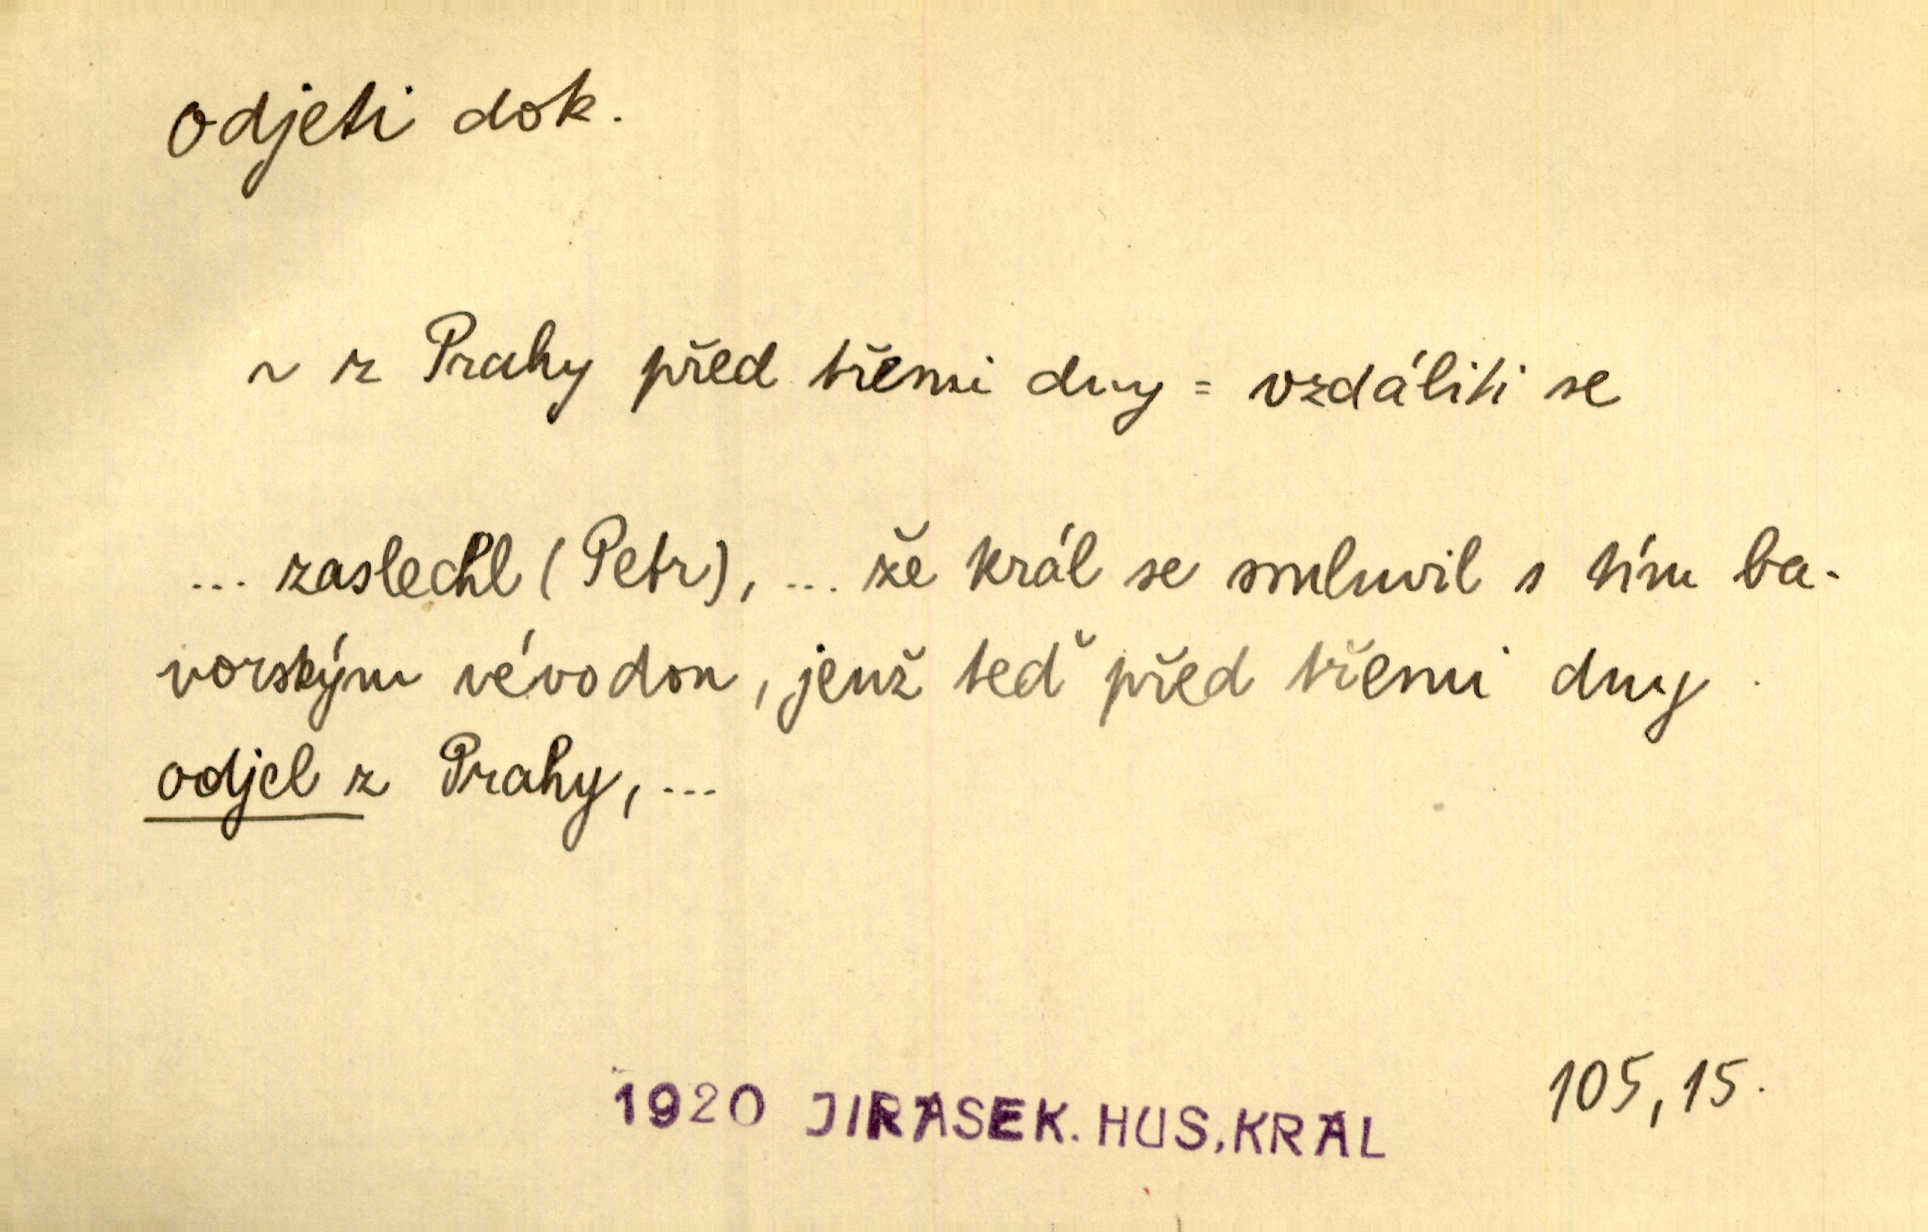 odjeti dok.
~ z Prahy před třemi dny = vzdáliti se
... zaslechl (Petr), ... že král se smluvil s tím ba-
vorským vévodou, jenž teď před třemi dny
odjel z Prahy, ...
1920 JIRASEK. HUS. KRAL 105, 15.